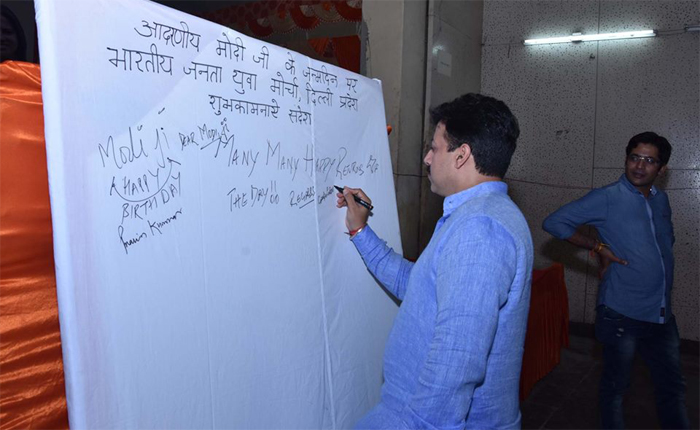 आदरणीय मोदी जी के जन्मदिन पर
भारतीय जनता युवा मोर्चा, दिल्ली प्रदेश
शुभकामनाऐ संदेश
Modi Ji
A HAPPY
BIRTHDAY
DEAR MODI Ji
MANY MANY HAPPY RETURNS OF
THE DAY!!